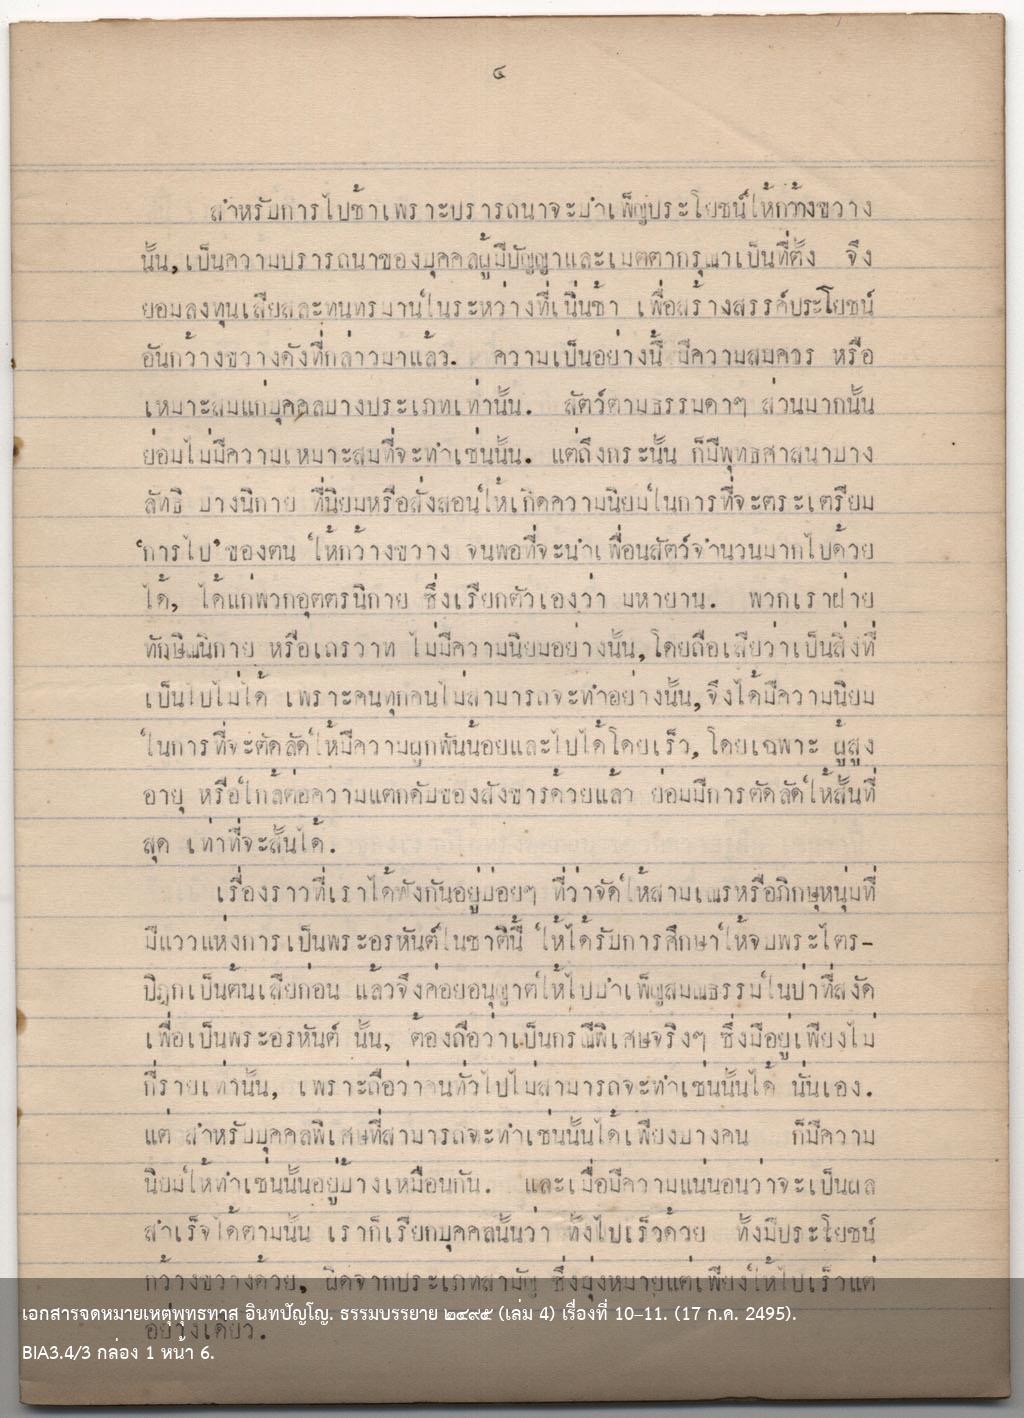 ๔
สำหรับการไปช้าเพราะปรารถนาจะบำเพ็ญประโยชน์ให้กว้างขวาง
นั้น, เป็นความปรารถนาของบุคคลผู้มีปัญญาและเมตตากรุณาเป็นที่ตั้ง จึง
ยอมลงทุนเสียสละทนทรมานในระหว่างที่เนิ่นช้า เพื่อสร้างสรรค์ประโยชน์
อันกว้างขวางดังที่กล่าวมาแล้ว. ความเป็นอย่างนี้ มีความสมควร หรือ
เหมาะสมแก่บุคคลบางประเภทเท่านั้น. สัตว์ตามธรรมดาๆ ส่วนมากนั้น
ย่อมไม่มีความเหมาะสมที่จะทำเช่นนั้น. แต่ถึงกระนั้น ก็มีพุทธศาสนาบาง
ลัทธิ บางนิกาย ที่นิยมหรือสั่งสอนให้เกิดความนิยมในการที่จะตระเตรียม
"การไป" ของตน ให้กว้างขวาง จนพอที่จะนำเพื่อนสัตว์จำนวนมากไปด้วย
ได้, ได้แก่พวกอุตตรนิกาย ซึ่งเรียกตัวเองว่า มหายาน. พวกเราฝ่าย
ทักษิณนิกาย หรือเถรวาท ไม่มีความนิยมอย่างนั้น, โดยถือเสียว่าเป็นสิ่งที่
เป็นไปไม่ได้ เพราะคนทุกคนไม่สามารถจะทำอย่างนั้น, จึงได้มีความนิยม
ในการที่จะตัดลัดให้มีความผูกพันน้อยและไปได้โดยเร็ว, โดยเฉพาะ ผู้สูง
อายุ หรือใกล้ต่อความแตกดับของสังขารด้วยแล้ว ย่อมมีการตัดลัดให้สั้นที่
สุด เท่าที่จะสั้นได้.
เรื่องราวที่เราได้ฟังกันอยู่บ่อยๆ ที่ว่าจัดให้สามเณรหรือภิกษุหนุ่มที่
มีแววแห่งการเป็นพระอรหันต์ในชาตินี้ ให้ได้รับการศึกษาให้จบพระไตร-
ปิฎกเป็นต้นเสียก่อน แล้วจึงค่อยอนุญาตให้ไปบำเพ็ญสมณธรรมในป่าที่สงัด
เพื่อเป็นพระอรหันต์ นั้น, ต้องถือว่าเป็นกรณีพิเศษจริงๆ ซึ่งมีอยู่เพียงไม่
กี่รายเท่านั้น, เพราะถือว่าคนทั่วไปไม่สามารถจะทำเช่นนั้นได้ นั่นเอง.
แต่ สำหรับบุคคลพิเศษที่สามารถจะทำเช่นนั้นได้เพียงบางคน ก็มีความ
นิยมให้ทำเช่นนั้นอยู่บ้างเหมือนกัน. และเมื่อมีความแน่นอนว่าจะเป็นผล
สำเร็จได้ตามนั้น เราก็เรียกบุคคลนั้นว่า ทั้งไปเร็วด้วย ทั้งมีประโยชน์
กว้างขวางด้วย, ผิดจากประเภทสามัญ ซึ่งมุ่งหมายแต่เพียงให้ไปเร็วแต่
อย่างเดียว.
เอกสารจดหมายเหตุพุทธทาส อินทปัญโญ. ธรรมบรรยาย ๒๔๙๕ (เล่ม 4) เรื่องที่ 10–11. (17 ก.ค. 2495).
BIA3.4/3 กล่อง 1 หน้า 6.